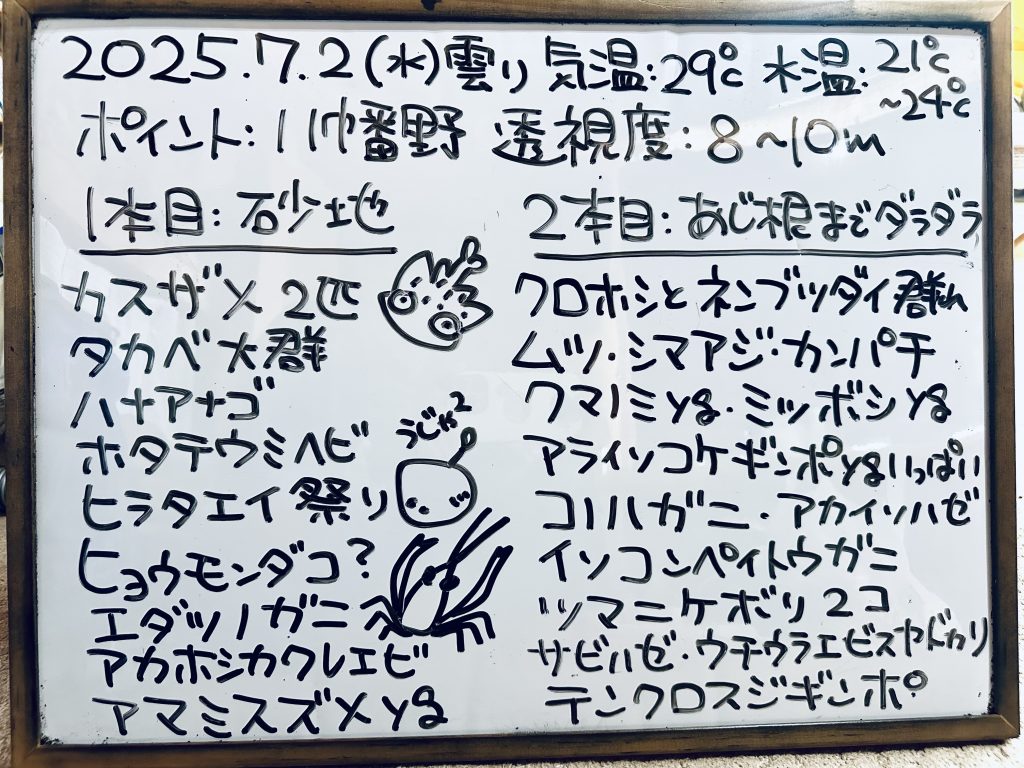 2025.7.2(水)雲り 気温:29℃ 水温:21℃
~24℃
ポイント:川奈番野 透視度:8~10m
1本目:砂地
カスザメ 2匹
タカベ大群
ハナアナゴ
ホタテウミヘビ
うじゃ2
ヒラタエイ祭り
ヒョウモンダコ?
エダツノガニ
アカホシカクレエビ
アマミスズメyg
2本目:あじ根までダラダラ
クロホシとネンブツダイ群れ
ムツ・シマアジ・カンパチ
クマノミyg・ミツボシyg
アライソコケギンポygいっぱい
コノハガニ・アカイソハゼ
イソコンペイトウガニ
ツマニケボリ2コ
サビハゼ・ウチウラエビスヤドカリ
テンクロスジギンポ